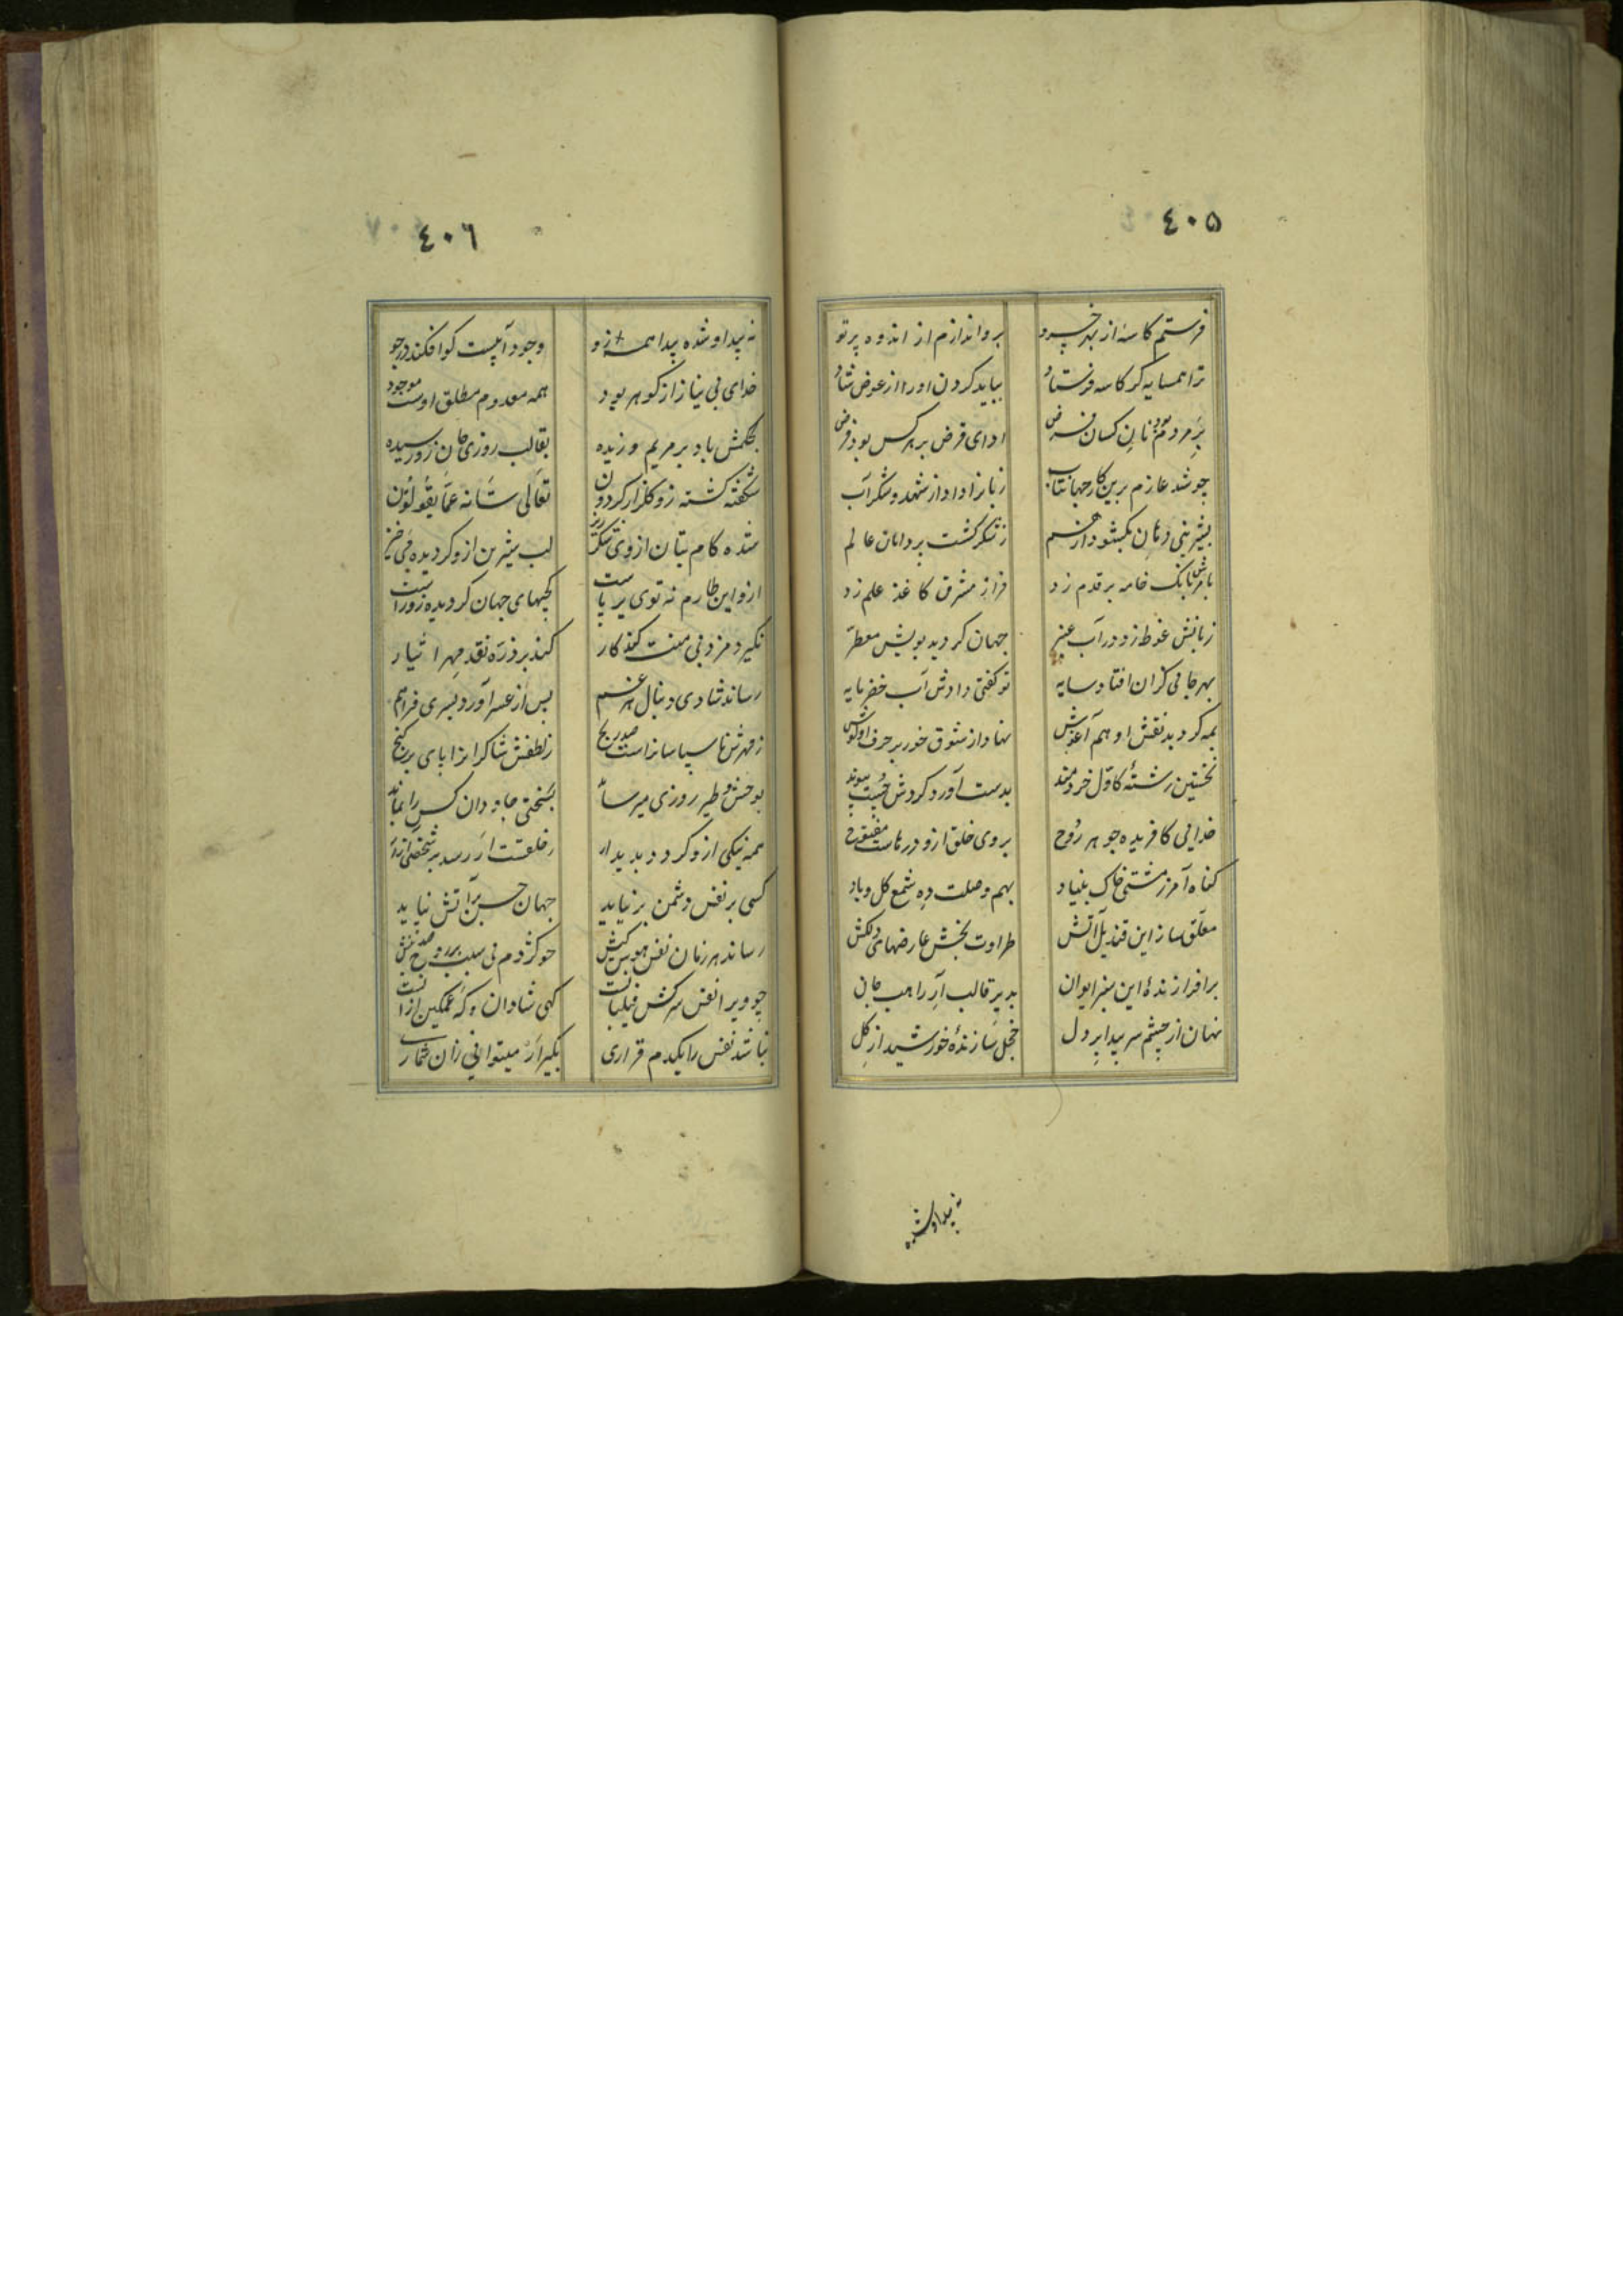 ٤٠٥
فرستم کاسه از بهر خسرو برو اندازم از اندوه پرتو
ترا همسایه کر کاسه فرستاد بباید کردن او را از عوض شاد
بر مردم بود نان کسان قرض ادای قرض بر هر کس بود فرض
چو شد عازم برین کار جهانتاب زبانرا داد از شهد و شکر آب
بشیرینی دهان بکشود از هم ز شکر کشت پر دامان عالم
بانک خامه بر قدم زد فراز مشرق کاغذ علم زد
زبانش غوطه زد در آب عنبر جهان کردید بویش معطر
بهر جا بی کران افتاد سایه تو کفتی دادش آب خضر مایه
بمه کردید نقش او هم آغوش نهاد از شوق خور بر حرف او کوش
نخستین رشتهٔ کاول خردمند بدست آورد کردش چست پیوند
خدایی کافریده جوهر روح بروی خلق ازو درهاست مفتوح
کناه آمرز مشتی خاک بنیاد بهم وصلت ده شمع کل و باد
معلق ساز این قندیل آتش طراوت بخش عارضهای دلکش
برافرازندهٔ این سبز ایوان بدیر قالب آر راهب جان
نهان از چشم سر پیدا بر دل خجل سازندهٔ خورشید از کل
نه پیدا و شده
٤٠٦
نه پیدا و شده پیدا همه زو وجود آبیست کو افکند در جو
خدای بی نیاز از کوهر بود همه معدوم مطلق اوست موجود
بحکمش باد بر مریم وزیده بقالب روزی جان زو رسیده
شکفته کشته زو کلزار کردون تعالی شانه عما یقولون
شده کام بتان از وی شکرریز لب شیرین ازو کردیده می خیز
ازو این طارم نه توی بر پاست کجیهای جهان کردیده زو راست
نکیرد مزد و بی منت کند کار کند بر ذره نقد مهر ایثار
رساند شادی دنبال هر غم پس از عسر آورد یسری فراهم
ز قهرش ناسپاسانراست صد رنج ز لطفش شاکرانرا پای بر کنج
بوحش و طیر روزی میرساند بسختی جاودان کس را نماند
همه نیکی ازو کردد پدیدار
کسی بر نفس دشمن بر نیاید جهان حسن بر آتش نیاید
رساند هر زمان نفس هوس کیش چو کژدم بی سبب بر روح صد نیش
چو ویرا نفس سرکش فیلبانست کهی شادان و که غمکین ازانست
نباشد نفس را یکدم قراری بکیر ار میتوانی زان شماری